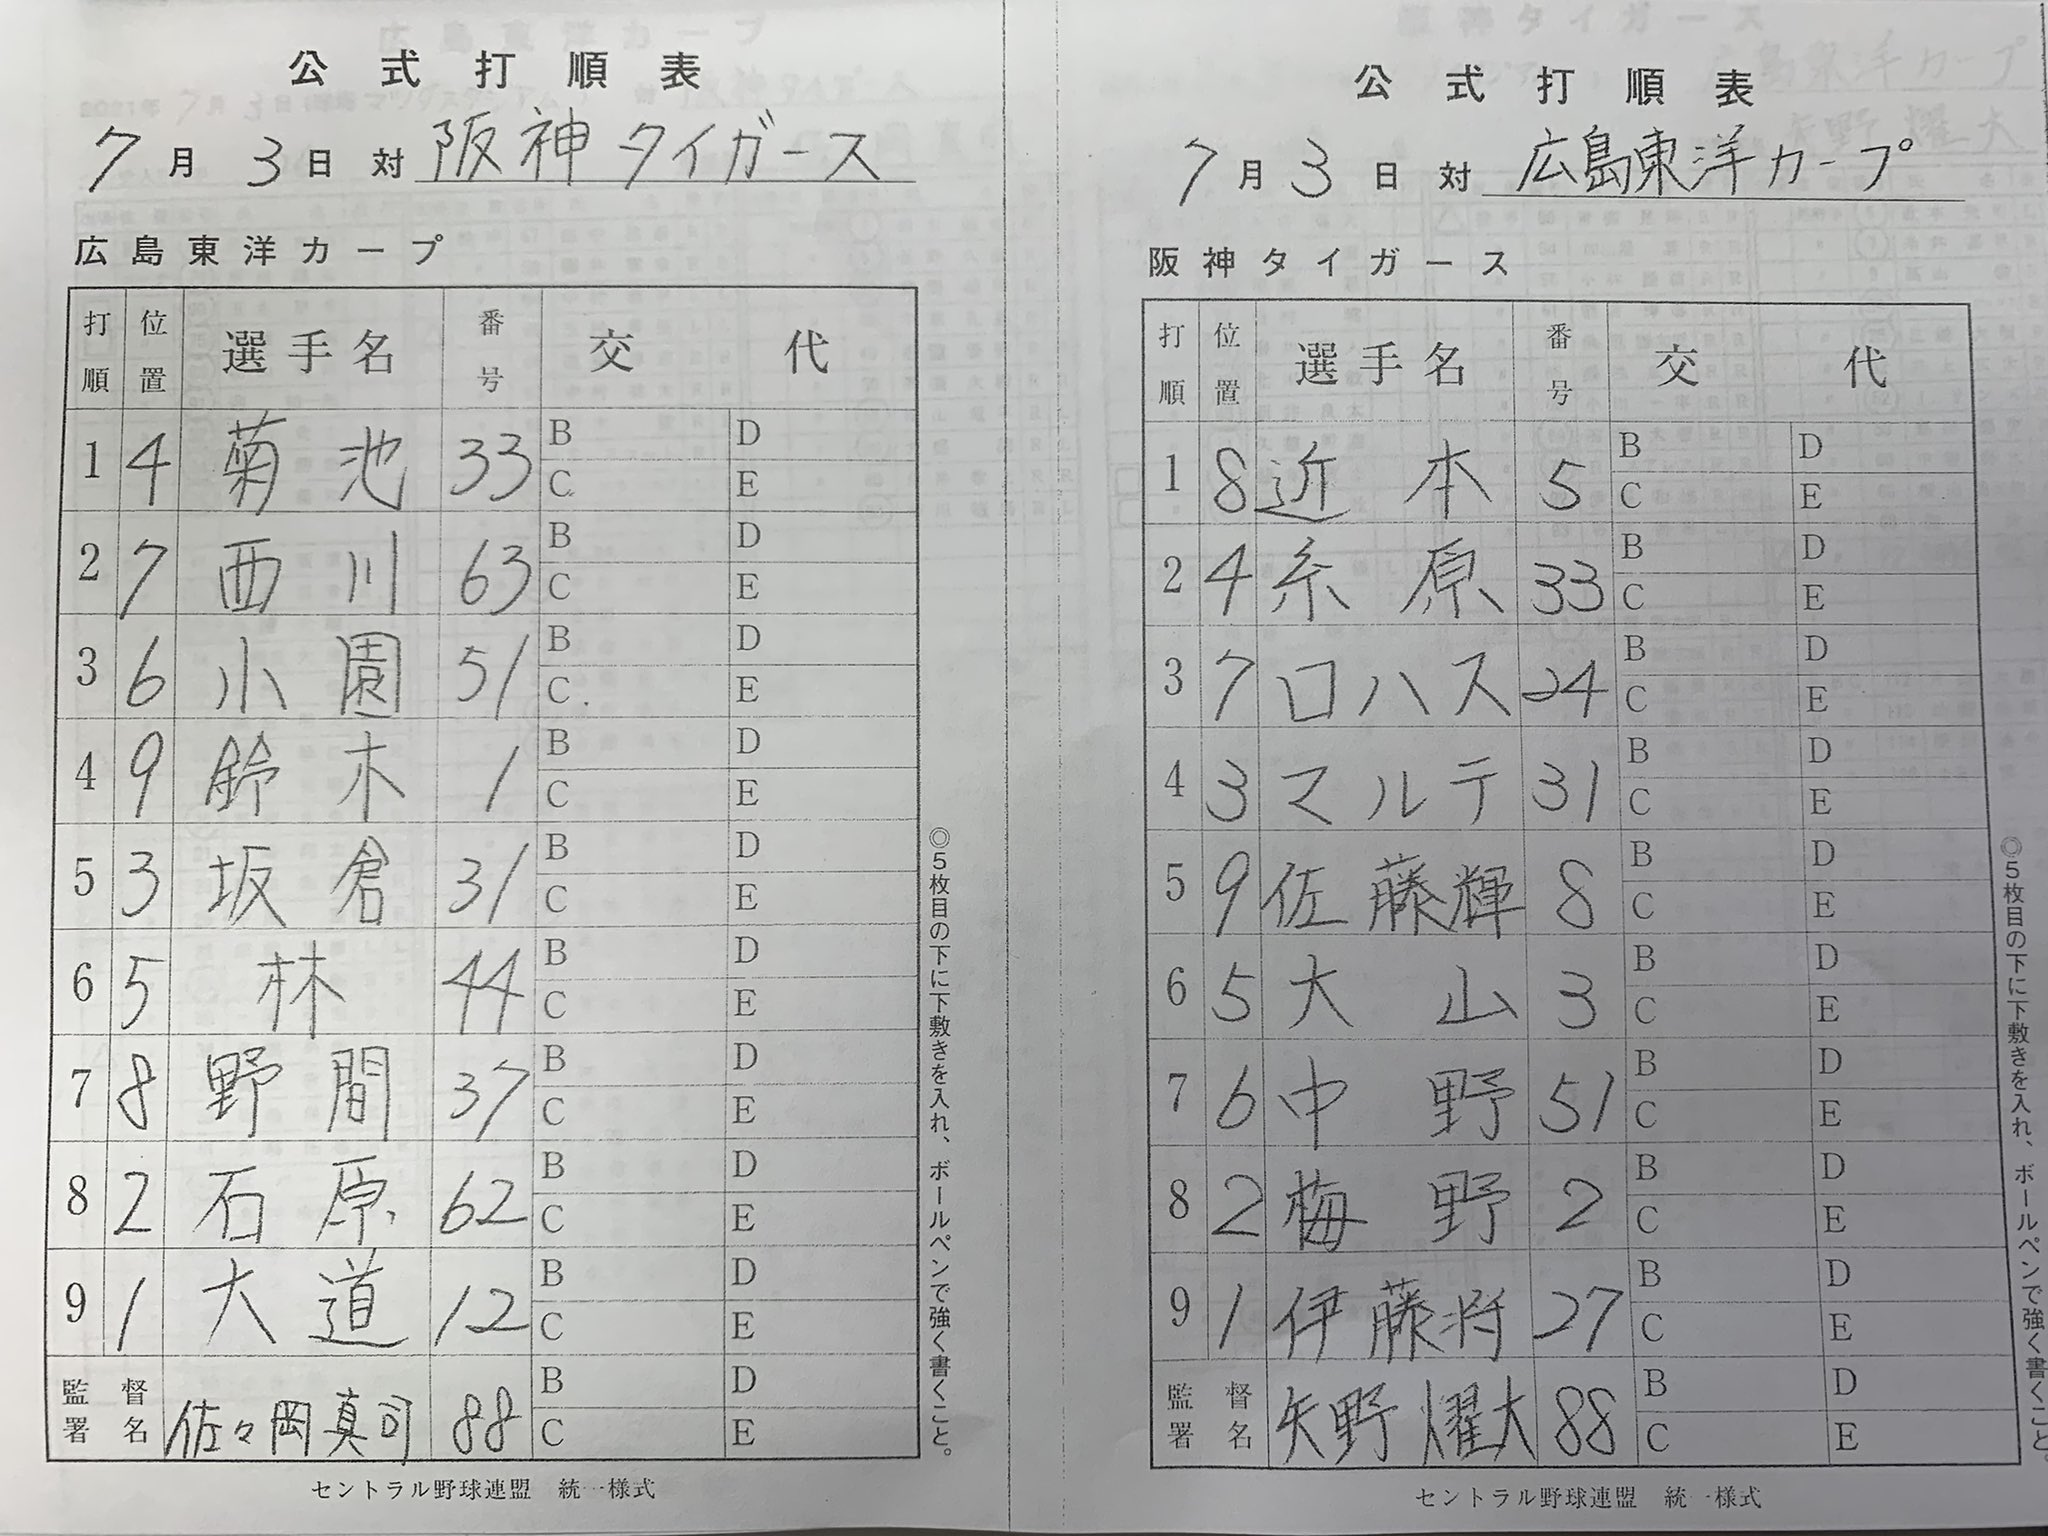 公式打順表
7月3日対 阪神タイガース
広島東洋カープ
打順 位置 選手名 番号 交代
1 4 菊池 33 B D
C E
2 7 西川 63 B D
C E
3 6 小園 51 B D
C E
4 9 鈴木 1 B D
C E
5 3 坂倉 31 B D
C E
6 5 林 44 B D
C E
7 8 野間 37 B D
C E
8 2 石原 62 B D
C E
9 1 大道 12 B D
C E
監督署名 佐々岡真司 88 B D
C E
セントラル野球連盟 統一様式
◎5枚目の下に下敷きを入れ、ボールペンで強く書くこと。
公式打順表
7月3日対 広島東洋カープ
阪神タイガース
打順 位置 選手名 番号 交代
1 8 近本 5 B D
C E
2 4 糸原 33 B D
C E
3 7 ロハス 24 B D
C E
4 3 マルテ 31 B D
C E
5 9 佐藤輝 8 B D
C E
6 5 大山 3 B D
C E
7 6 中野 51 B D
C E
8 2 梅野 2 B D
C E
9 1 伊藤将 27 B D
C E
監督署名 矢野燿大 88 B D
C E
セントラル野球連盟 統一様式
◎5枚目の下に下敷きを入れ、ボールペンで強く書くこと。